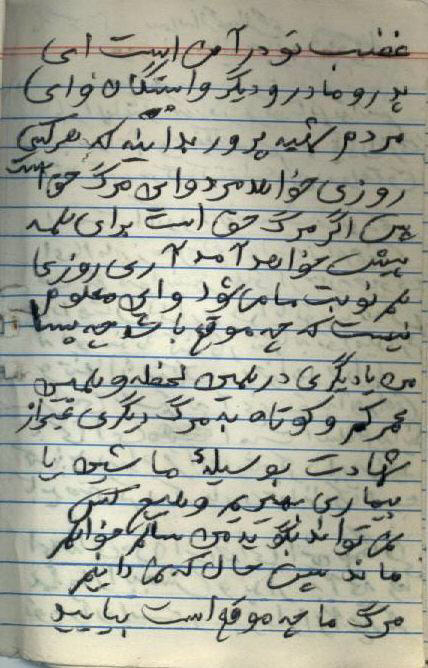 غضب تو در آمن است ای
پدر و مادر و دیگر وابستگان و ای
مردم شهید پرور بدانید که هر کسی
روزی خواهد مرد و این مرگ حق است
پس اگر مرگ حق است برای همه
پیش خواهد آمد آری روزی
هم نوبت ما می‌شود و این معلوم
نیست که چه موقع باشد چه بسا
من یا دیگری در همین لحظه و همین
عمر کم و کوتاه به مرگ دیگری غیر از
شهادت بوسیلهٔ ماشین یا
بیماری بمیریم و هیچ کس
نمی تواند بگوید من سالم خواهم
ماند پس حال که نمی دانیم
مرگ ما چه موقع است بیایید